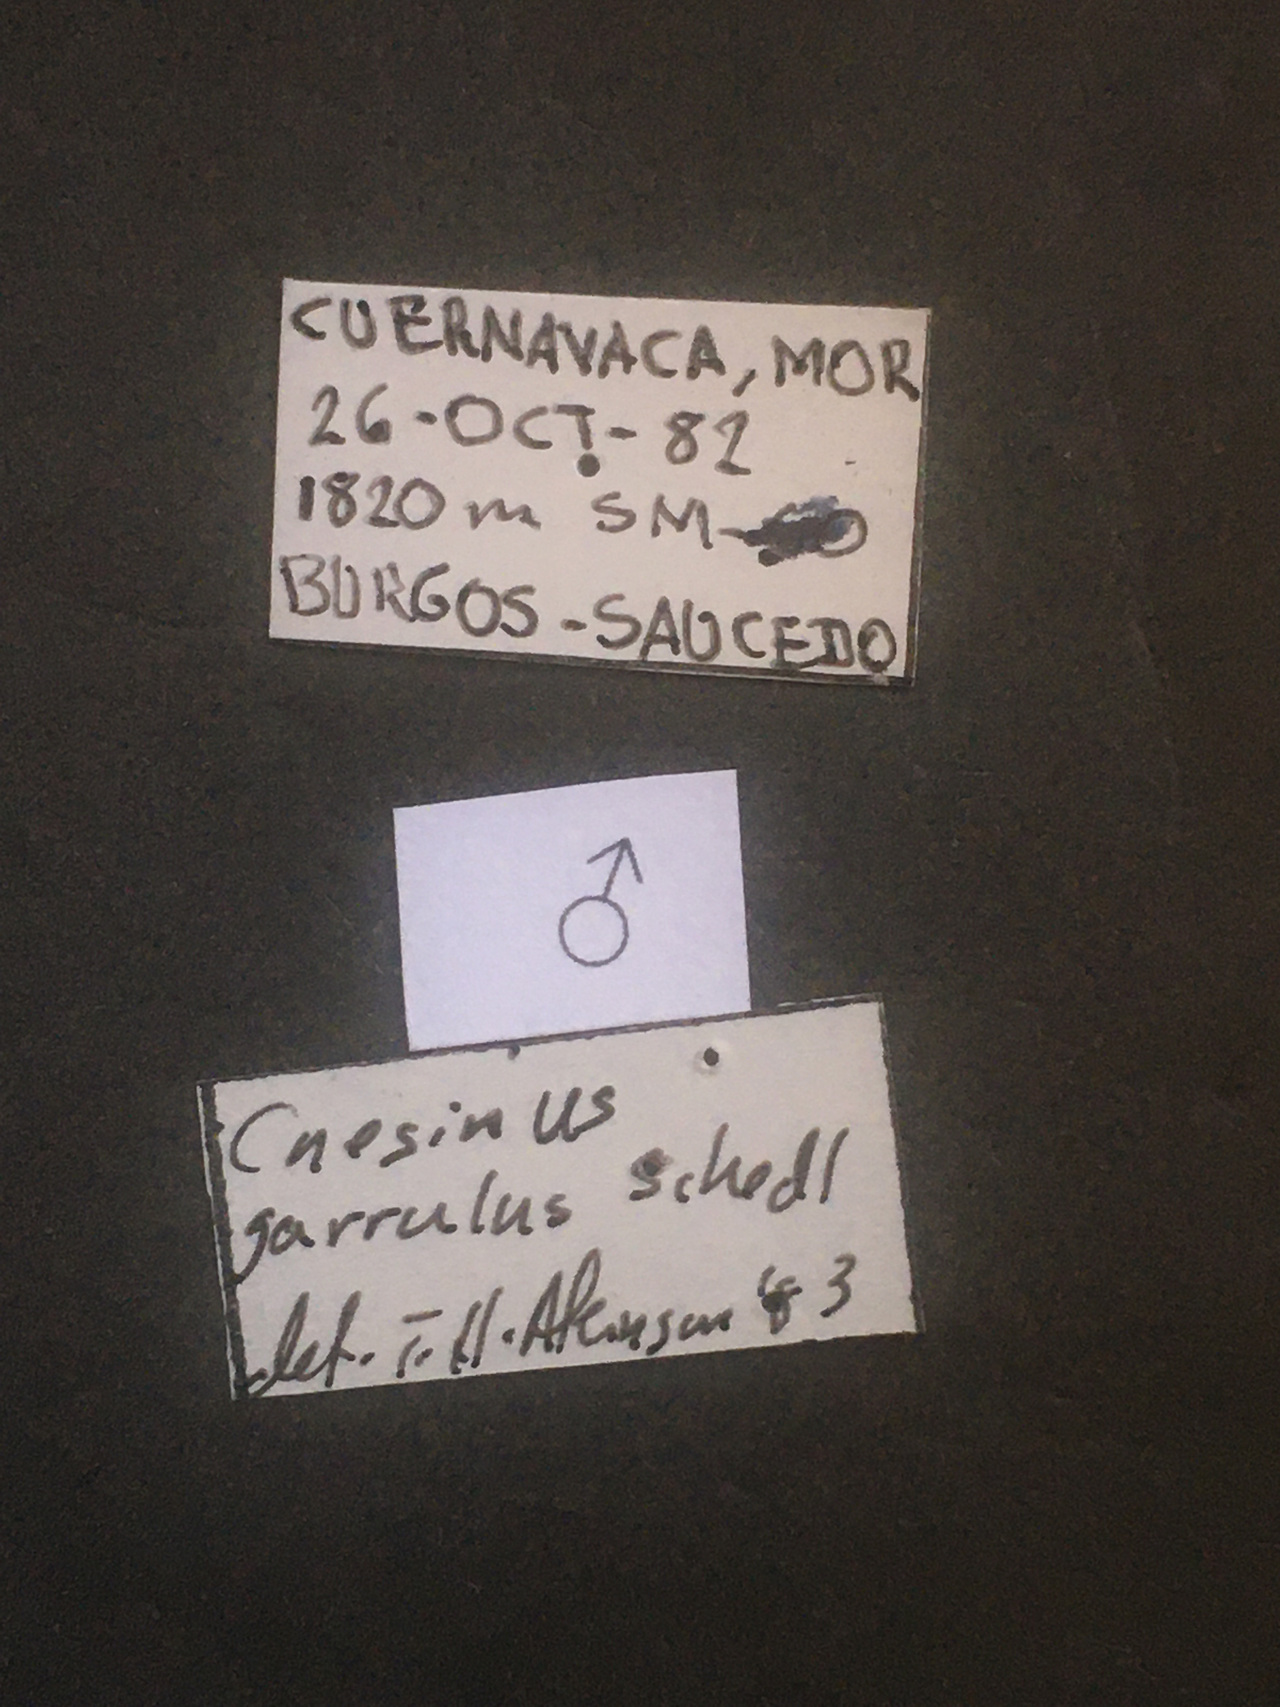 CUERNAVACA, MOR
26-OCT-82
1820 m SM-
BURGOS-SAUCEDO
♂
Cnesinus
garrulus Schedl
det. T.H. Atkinson '83